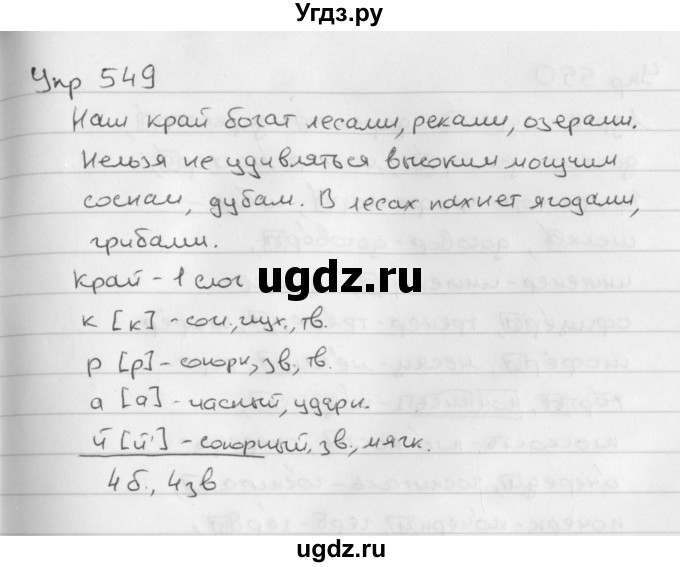 Угдз.ру
Упр 549
Наш край богат лесами, реками, озерами.
Нельзя не удивляться высоким могучим
соснам, дубам. В лесах пахнет ягодами,
грибами.
Край - 1 слог
ugdz.ru
к [к] - сог., глух., тв.
р [р] - сонорн, зв, тв.
а [а] - часный, ударн.
й [й'] - сонорный, зв., мягк.
4 б., 4 зв
ugdz.ru